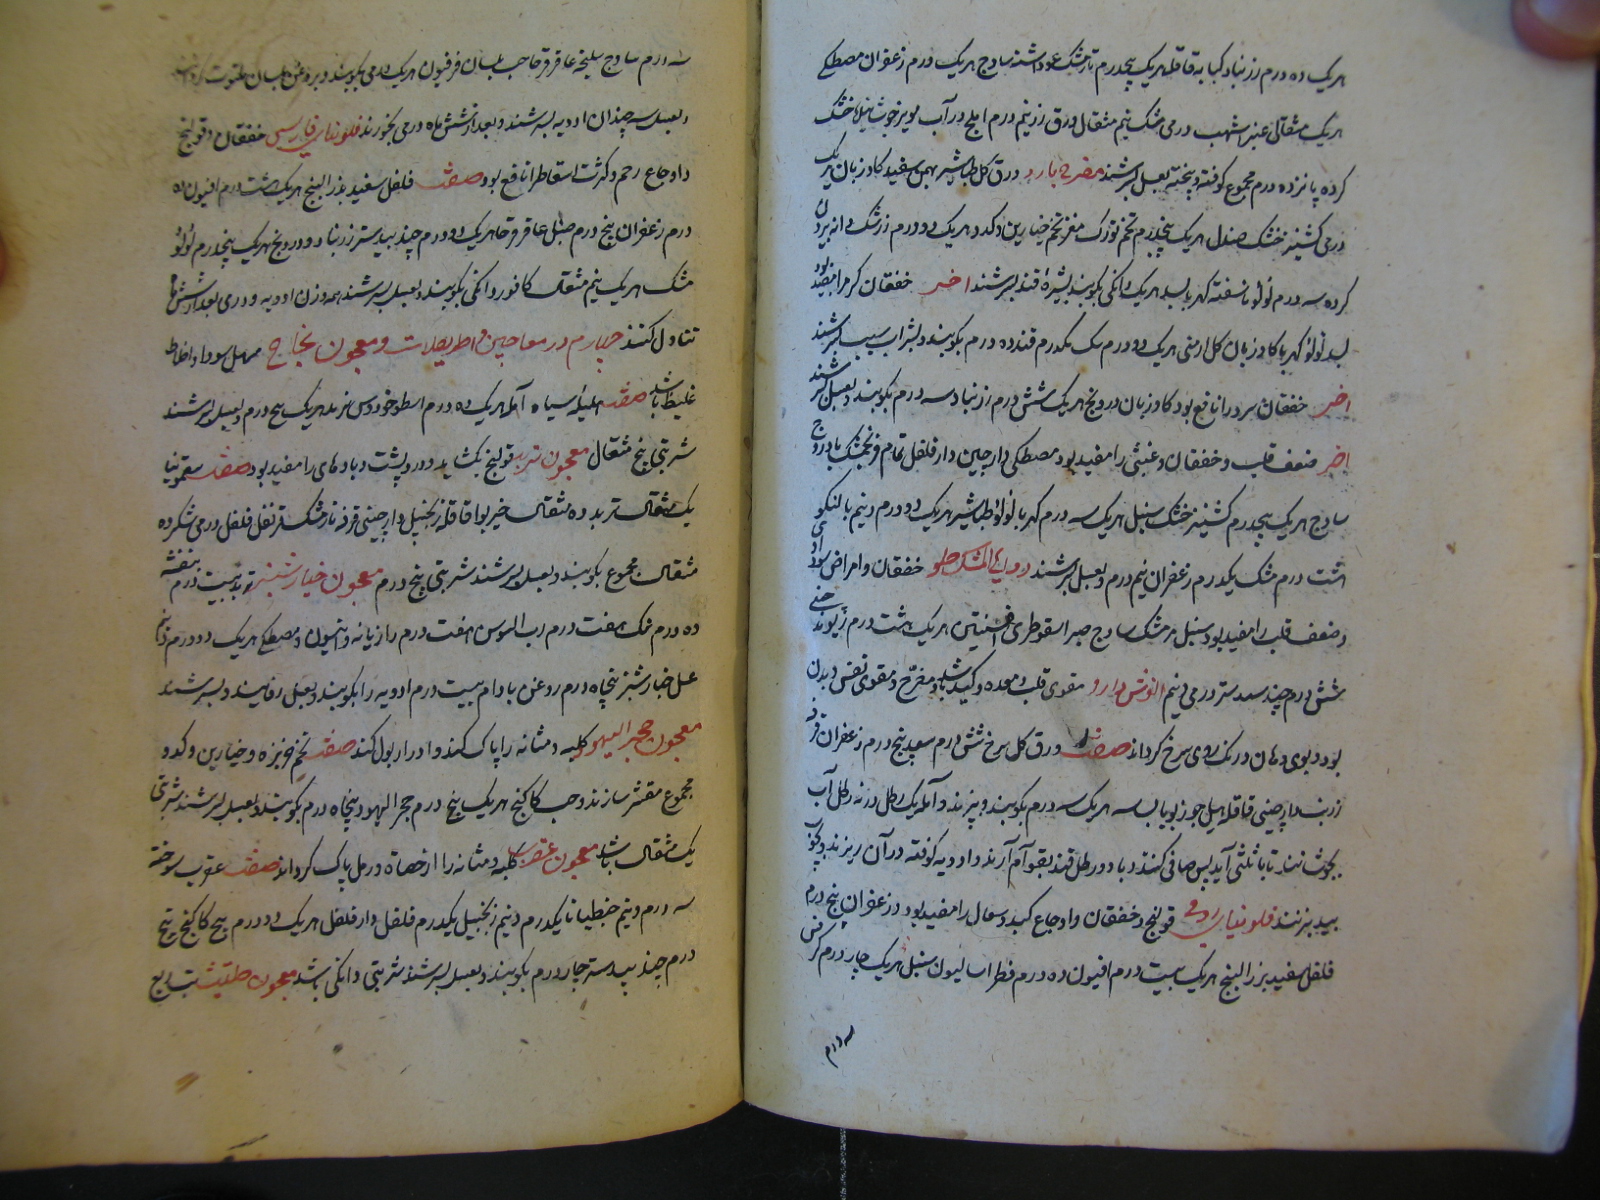 هریک ده درم زرنباد کبابه قاقله هریک پنجدرم نارمشک عود اشنه سادج هریک درم زعفران مصطکی
هریک مثقالی عنبر اشهب درمی مشک نیم مثقال ورق زر نیم درم املج در آب مویز خوشانیده خشک
کرده پانزده درم مجموع کوفته و بیخته بعسل بسرشند مفرح بارد ورق کل طباشیر بهمن سفید کاوزبان هریک
درمی کشنیز خشک صندل هریک پنجدرم تخم تورک مغز تخم خیارین و کدو هریک دو درم زرشک دانه بیرون
کرده سه درم لولو ناسفته کهربا بسد هریک دانکی بکوبند بشیره قند بسرشند اخر خفقان کرم را مفید بود
بسد لولو کهربا کاوزبان کل ارمنی هریک دو درم مشک یکدرم قند ده درم بکوبند و بشراب سیب بسرشند
اخر خفقان سرد را نافع بود کاوزبان درونج هریک شش درم زرنباد سه درم بکوبند و بعسل بسرشند
اخر ضعف قلب و خفقان و غشی را مفید بود مصطکی دارچین دارفلفل تمام فرنجمشک بادروج
سادج هریک پنجدرم کشنیز خشک سنبل هریک سه درم کهربا لولو طباشیر هریک دو درم و نیم بالنکوی
هشت درم مشک یکدرم زعفران نیم درم و بعسل بسرشند دواء المسک حلو خفقان و امراض سوداوی
و ضعف قلب را مفید بود سنبل مشک سادج صبر اسقوطری افسنتین هریک هشت درم ریوند چینی
شش درم جند بیدستر درمی و نیم انوش دارو مقوی قلب و معده و کبد باشد و مفرح و مقوی نفس و بدن
بود و بوی دهان و رنک روی سرخ کرداند صفت ورق کل سرخ شش درم سعد پنج درم زعفران قرفه
زرنب دارچینی قاقله هیل جوزبویا بسباسه هریک سه درم بکوبند و بپزند و آمله یک رطل در نه رطل آب
بجوشانند تا با ثلثی آید پس صافی کنند و با دو رطل قند بقوام آرند و ادویه کوفته در آن ریزند و بچوب
بید بزنند فلونیای رومی قولنج و خفقان و اوجاع کبد و سعال را مفید بود زعفران پنج درم
فلفل سفید بزر البنج هریک بیست درم افیون ده درم فطراسالیون سنبل هریک چار درم کرفس
سه درم
سه درم سادج سلیخه عاقرقرحا حب بلسان فرفیون هریک درمی بکوبند و بروغن بلسان ملتوت کرده
بعسل سه چندان ادویه بسرشند و بعد از شش ماه درمی بخورند فلونیای فارسی خفقان و قولنج
و اوجاع رحم و کثرت اسقاط را نافع بود صفت فلفل سفید بذر البنج هریک بیست درم افیون ده
درم زعفران پنج درم سنبل عاقرقرحا هریک دو درم جند بیدستر زرنباد و درونج هریک پنجدرم لولو
مشک هریک نیم مثقال کافور دانکی بکوبند و بعسل بسرشند هموزن ادویه و دری بعد از شش ماه
تناول کنند چهارم در معاجین و اطریفلات و معجون نجاح مسهل سودا و اخلاط
غلیظ باشد صفت هلیله سیاه آمله هریک ده درم اسطوخودوس تربد هریک پنج درم بعسل بسرشند
شربتی پنج مثقال معجون تربد قولنج بکشاید و درد پشت و بادهای را مفید بود صفت سقمونیا
یک مثقال تربد ده مثقال خیربوا قاقله زنجبیل دارچینی قرفه نارمشک قرنفل فلفل درمی شکر ده
مثقال مجموع بکوبند و بعسل بسرشند شربتی پنج درم معجون خیار شنبر تربد بیست درم بنفشه
ده درم نمک هفت درم رب السوس هفت درم رازیانه و انیسون و مصطکی هریک دو درم و نیم
عسل خیارشنبر پنجاه درم روغن بادام بیست درم ادویه را بکوبند و بعسل بسرشند
معجون حجر الیهود کلیه و مثانه را پاک کند و ادرار بول کند صفت تخم خربزه و خیارین و کدو
مجموع مقشر سازند و حب کاکنج هریک پنج درم حجر الیهود پنجاه درم بکوبند و بعسل بسرشند شربتی
یک مثقال باشد معجون عقرب کلیه و مثانه را از حصاة و رمل پاک کرداند صفت عقرب سوخته
سه درم و نیم جنطیانا یکدرم و نیم زنجبیل یکدرم فلفل دارفلفل هریک دو درم بیخ کاکنج پنج
درم جند بیدستر چار درم بکوبند و بعسل بسرشند شربتی دانکی باشد معجون حلتیت تب ربع